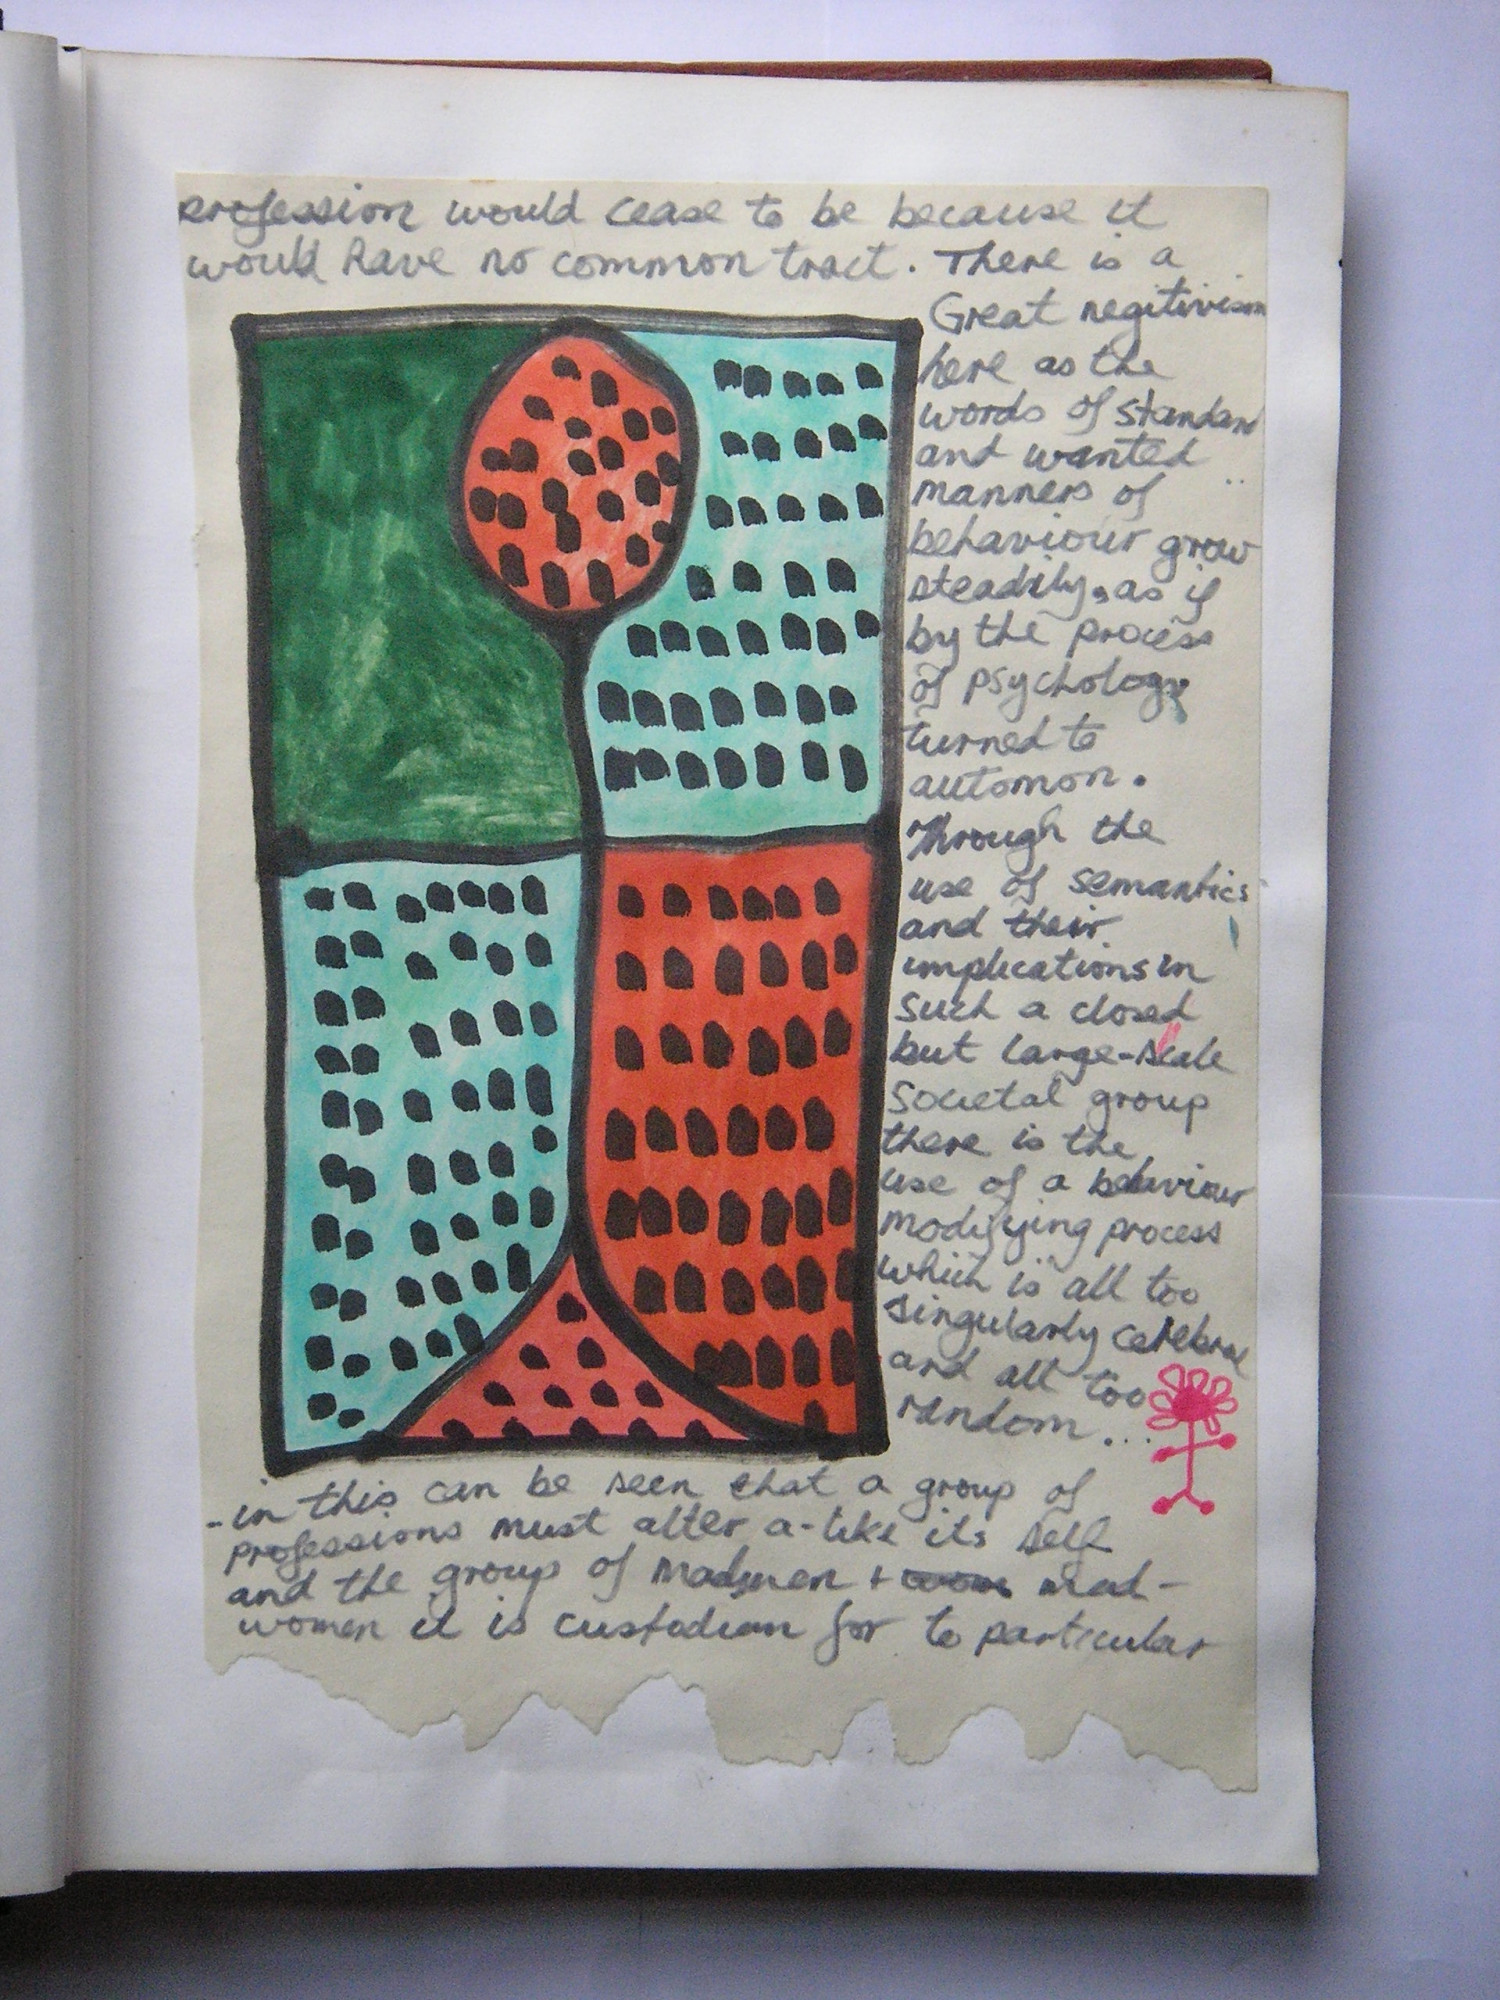 profession would cease to be because it
would have no common tract. There is a
Great negitivism
here as the
words of standard
and wanted
manners of
behaviour grow
steadily, as if
by the process
of psychology
turned to
automon.
Through the
use of semantics
and their
implications in
such a closed
but large-scale
societal group
there is the
use of a behaviour
modifying process
which is all too
singularly cerebral
and all too
random...
-in this can be seen that a group of
professions must alter a-like its self
and the group of madmen + mad-
women it is custodian for to particular